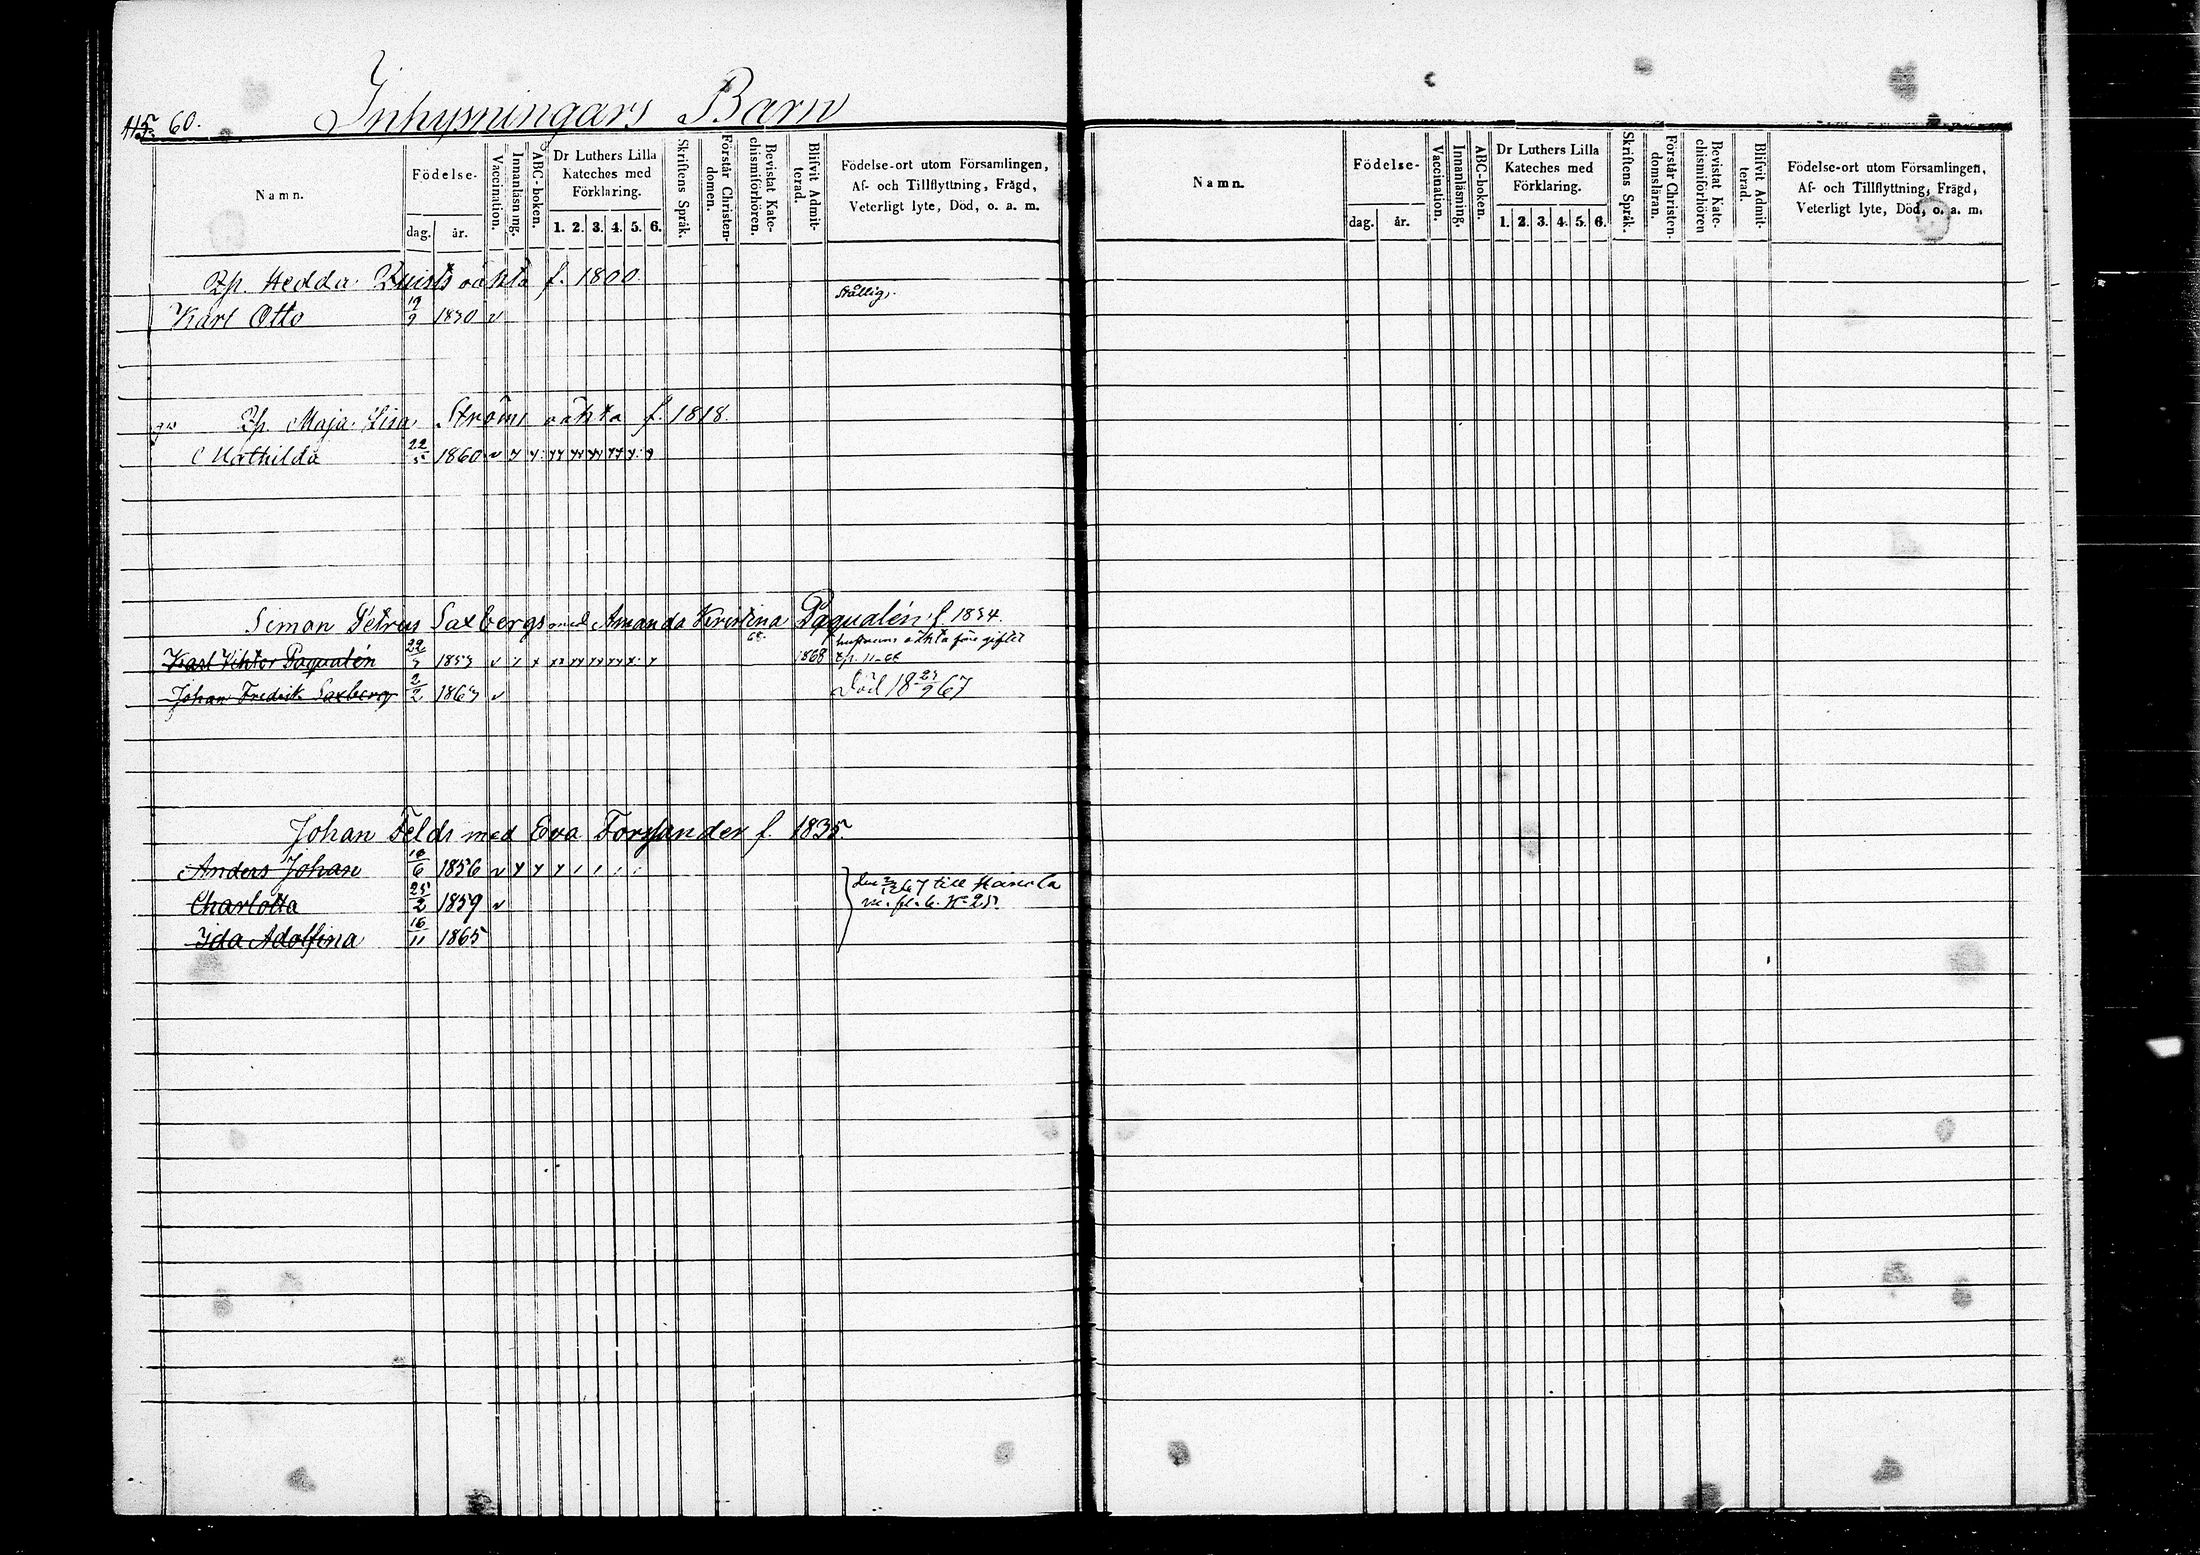 115. 60. Inhysningars Barn
Namn.
Födelse-
dag. år.
Vaccination.
Innanläsning.
ABC-boken.
Dr Luthers Lilla
Kateches med
Förklaring.
1. 2. 3. 4. 5. 6.
Skriftens Språk.
Förstår Christen-
domen.
Bevistat Kate-
chismiförhören.
Blifvit Admit-
terad.
Födelse-ort utom Församlingen,
Af- och Tillflyttning, Frägd,
Veterligt lyte, Död, o. a. m.
Hedda Quists oäkta f. 1800.
Karl Otto 19/9 1830 v
Maja Lisa Ströms oäkta f. 1818.
Mathilda 22/5 1860 v
Simon Petrus Saxbergs med Amanda Kristina Paqualén f. 1834.
Karl Viktor Paqualén 1868
hustruns oäkta före giftet
Johan Fredrik Saxberg 2/2 v Död 18 67
Johan Felds med Eva Forslander f. 1835.
Anders Johan 1856 v
Charlotta 25/2 1859 v
till
Ida Adolfina 16/11 1865
Namn.
Födelse-
dag. år.
Vaccination.
Innanläsning.
ABC-boken.
Dr Luthers Lilla
Kateches med
Förklaring.
1. 2. 3. 4. 5. 6.
Skriftens Språk.
Förstår Christen-
domsläran.
Bevistat Kate-
chismiförhören
Blifvit Admit-
terad.
Födelse-ort utom Församlingen,
Af- och Tillflyttning, Frägd,
Veterligt lyte, Död, o. a. m.